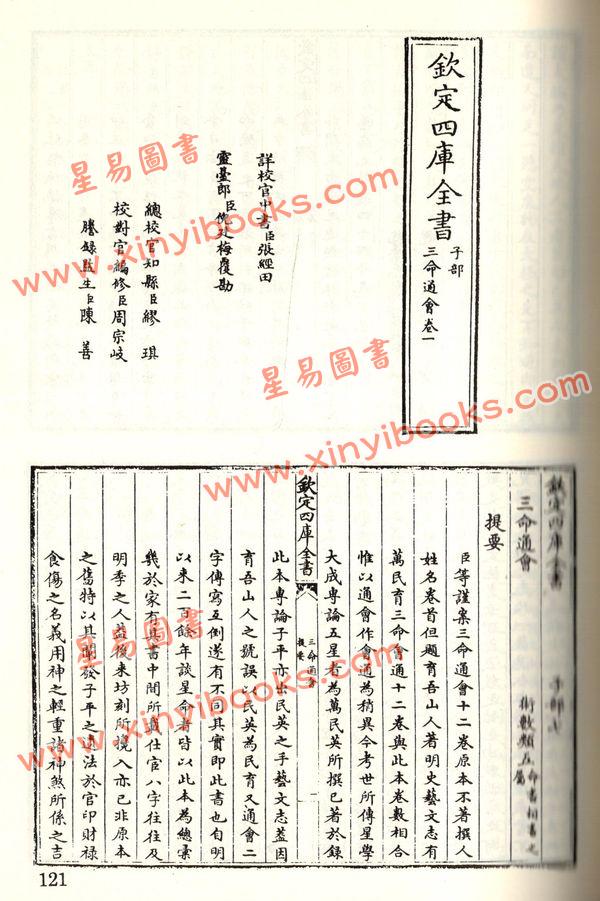 欽定四庫全書
子部
三命通會卷一
詳校官中書臣張經田
靈臺郎臣倪廷梅覆勘
總校官知縣臣繆琪
校對官編修臣周宗岐
謄錄監生臣陳善
欽定四庫全書
子部七
三命通會
術數類五命書相書之屬
提要
臣等謹案三命通會十二卷原本不著撰人
姓名卷首但題育吾山人著明史藝文志有
萬民育三命會通十二卷與此本卷數相合
惟以通會作會通為稍異今考世所傳星學
大成專論五星者為萬民英所撰已著於錄
欽定四庫全書
三命通會
提要
一
此本專論子平亦出民英之手藝文志蓋因
育吾山人之號誤以民英為民育又通會二
字傳寫互倒遂有不同其實即此書也自明
以來二百餘年談星命者皆以此本為總彙
幾於家有其書中間所載仕宦八字往往及
明季之人蓋後來坊刻所攙入亦已非原本
之舊特以其闡發子平之遺法於官印財祿
食傷之名義用神之輕重諸神煞所係之吉
121
星易圖書
www.xinyibooks.com
星易圖書
www.xinyibooks.com
星易圖書
www.xinyibooks.com